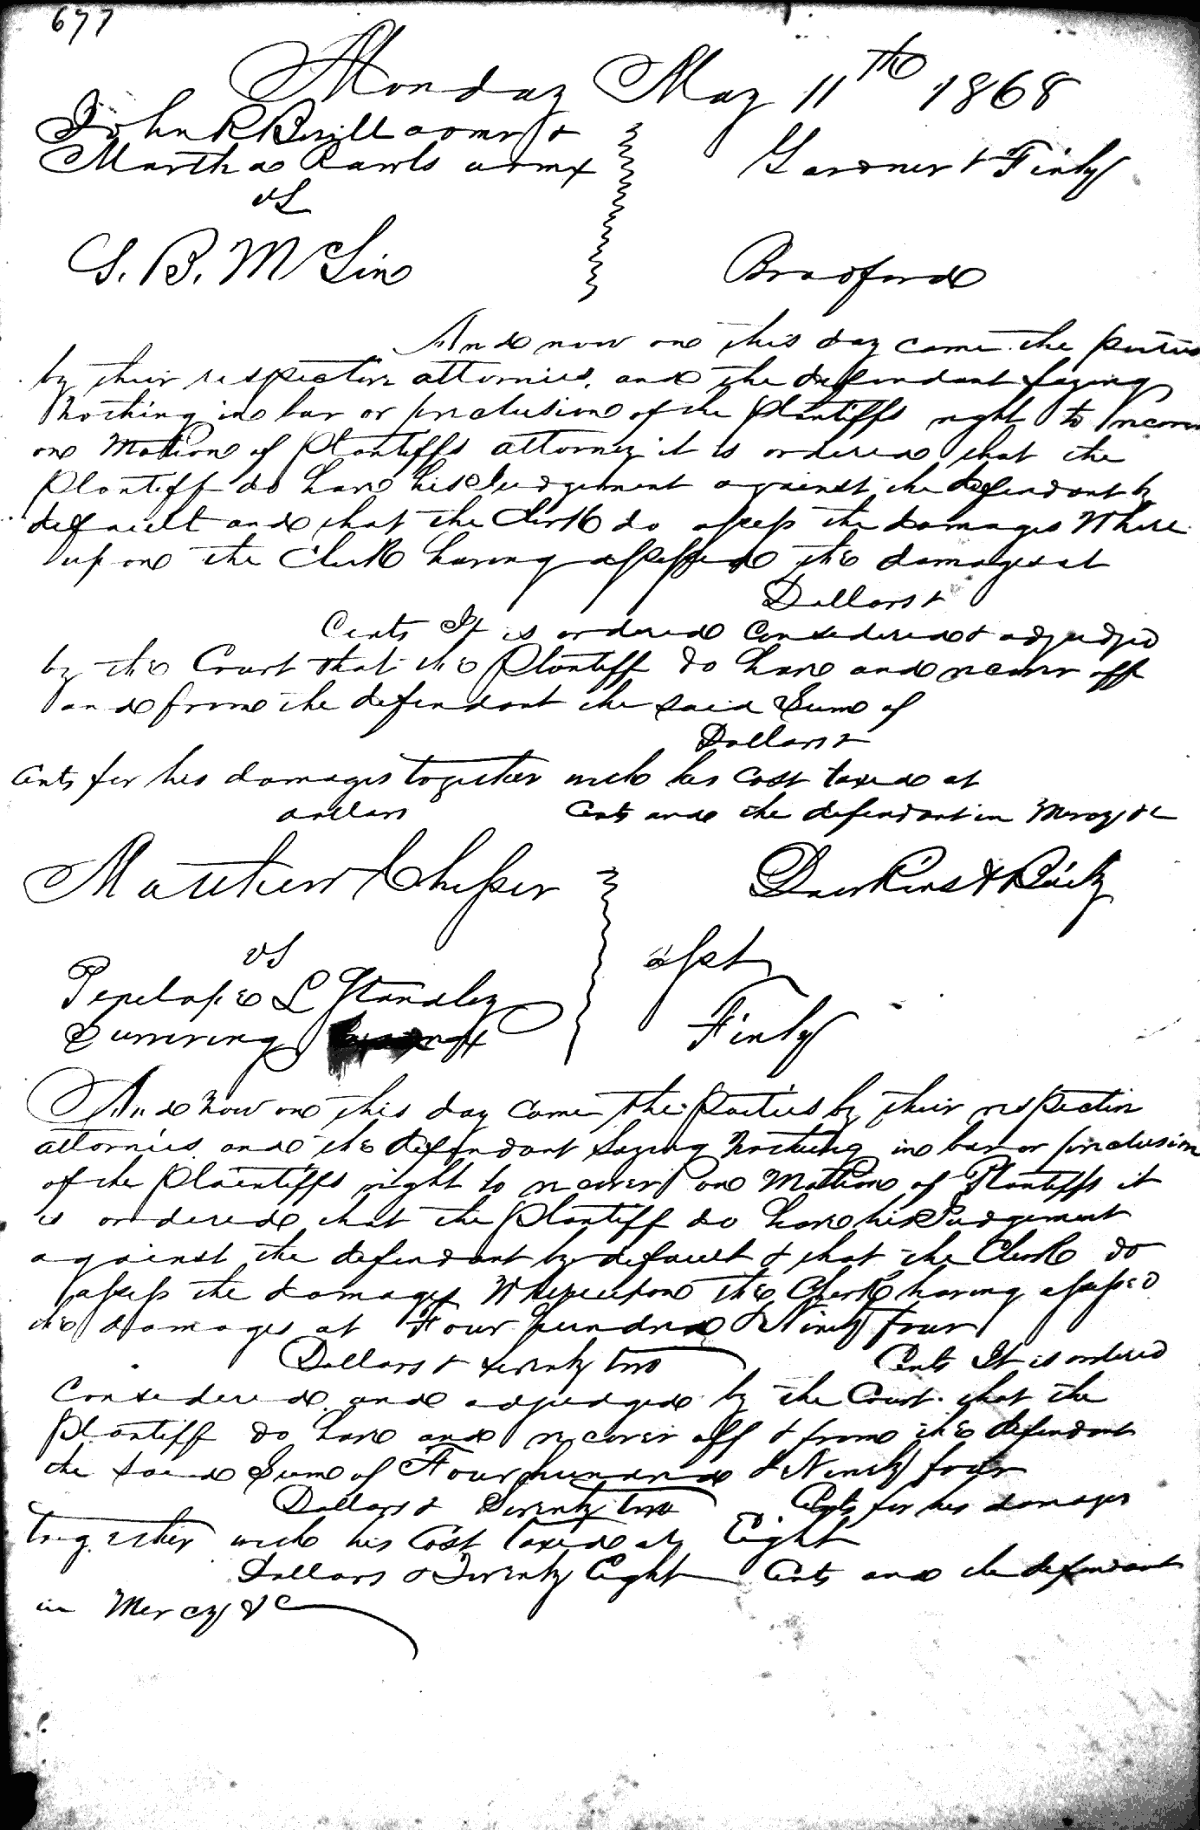 677
Monday May 11th 1868
John R Bevill admr &
Martha Rawls admx
Gardner & Finly
vs
S. B. McLin
Bradford
And now on this day came the parties
by their respective attornies, and the defendant saying
Nothing in bar or preclusion of the plantiffs right to recover
on Motion of Plantiffs attorney it is ordered that the
Plantiff do have his Judgement against the defendant by
default and that the Clerk do assess the damages Where
upon the Clerk having assessed the damages at
Dollars &
Cents It is ordered considered & adjudged
by the Court that the Plantiff do have and recover off
and from the defendant the said Sum of
Dollars &
Cents for his damages together with his cost taxed at
dollars Cents and the defendant in Mercy &c
Matthew
Dawkins &
vs
asst
Penelope L Standley
Surviving
Finly
And Now on this day came the Parties by their respective
attornies and the defendant saying Nothing in bar or preclusion
of the Plaintiffs right to recover on Motion of Plantiffs it
is ordered that the plantiff do have his Judgement
against the defendant by default & that the Clerk do
assess the damages Whereupon the Clerk having assessed
the damages at Four hundred & Ninety four
Dollars & seventy two Cents It is ordered
Considered and adjudged by the Court that the
plantiff do have and recover off & from the defendant
the said Sum of Four hundred & Ninety four
Dollars & Seventy two Cents for his damages
together with his Cost taxed at Eight
Dollars & Twenty Eight Cents and the defendant
in Mercy &c